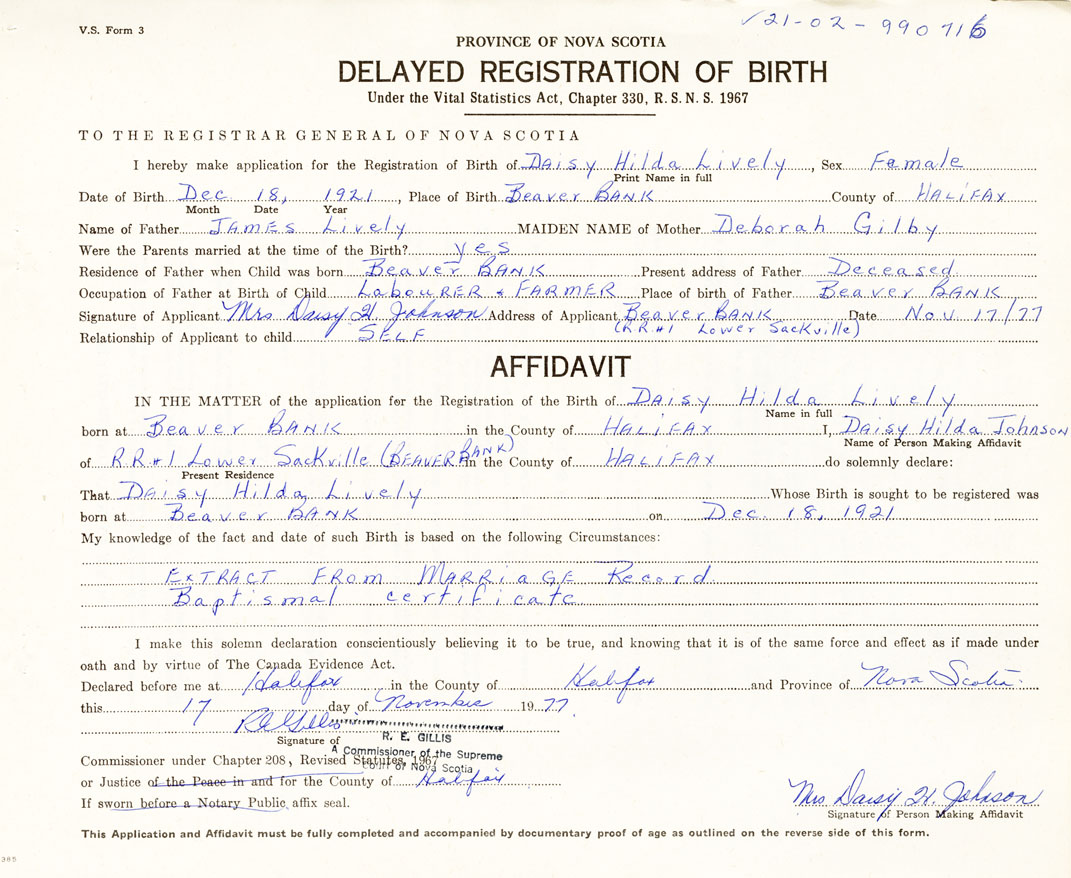 V.S. Form 3
✓21-02-990716
PROVINCE OF NOVA SCOTIA
DELAYED REGISTRATION OF BIRTH
Under the Vital Statistics Act, Chapter 330, R. S. N. S. 1967
TO THE REGISTRAR GENERAL OF NOVA SCOTIA
I hereby make application for the Registration of Birth of Daisy Hilda Lively, Sex Female
Print Name in full
Date of Birth Dec 18, 1921, Place of Birth Beaver BANK County of HALIFAX
Month Date Year
Name of Father JAMES Lively MAIDEN NAME of Mother Deborah Gilby
Were the Parents married at the time of the Birth? yes
Residence of Father when Child was born Beaver BANK Present address of Father Deceased
Occupation of Father at Birth of Child LabouRER & FARMER Place of birth of Father Beaver BANK
Signature of Applicant Mrs. Daisy H. Johnson Address of Applicant Beaver BANK Date Nov 17/77
(RR#1 Lower Sackville)
Relationship of Applicant to child SELF
AFFIDAVIT
IN THE MATTER of the application for the Registration of the Birth of Daisy Hilda Lively
Name in full
born at Beaver BANK in the County of HALIFAX I, Daisy Hilda Johnson
Name of Person Making Affidavit
of RR#1 Lower Sackville (BEAVER BANK) in the County of HALIFAX do solemnly declare:
Present Residence
That Daisy Hilda Lively Whose Birth is sought to be registered was
born at Beaver BANK on Dec. 18, 1921
My knowledge of the fact and date of such Birth is based on the following Circumstances:
ExTRACT FRom MARRiaGE Record
Baptismal certificate
I make this solemn declaration conscientiously believing it to be true, and knowing that it is of the same force and effect as if made under
oath and by virtue of The Canada Evidence Act.
Declared before me at Halifax in the County of Halifax and Province of Nova Scotia.
this 17 day of November 1977.
RE Gillis
Signature of R. E. GILLIS
A Commissioner of the Supreme
Commissioner under Chapter 208, Revised Statutes, 1967
Court of Nova Scotia
or Justice of the Peace in and for the County of Halifax
If sworn before a Notary Public, affix seal.
Mrs Daisy H. Johnson
Signature of Person Making Affidavit
This Application and Affidavit must be fully completed and accompanied by documentary proof of age as outlined on the reverse side of this form.
385